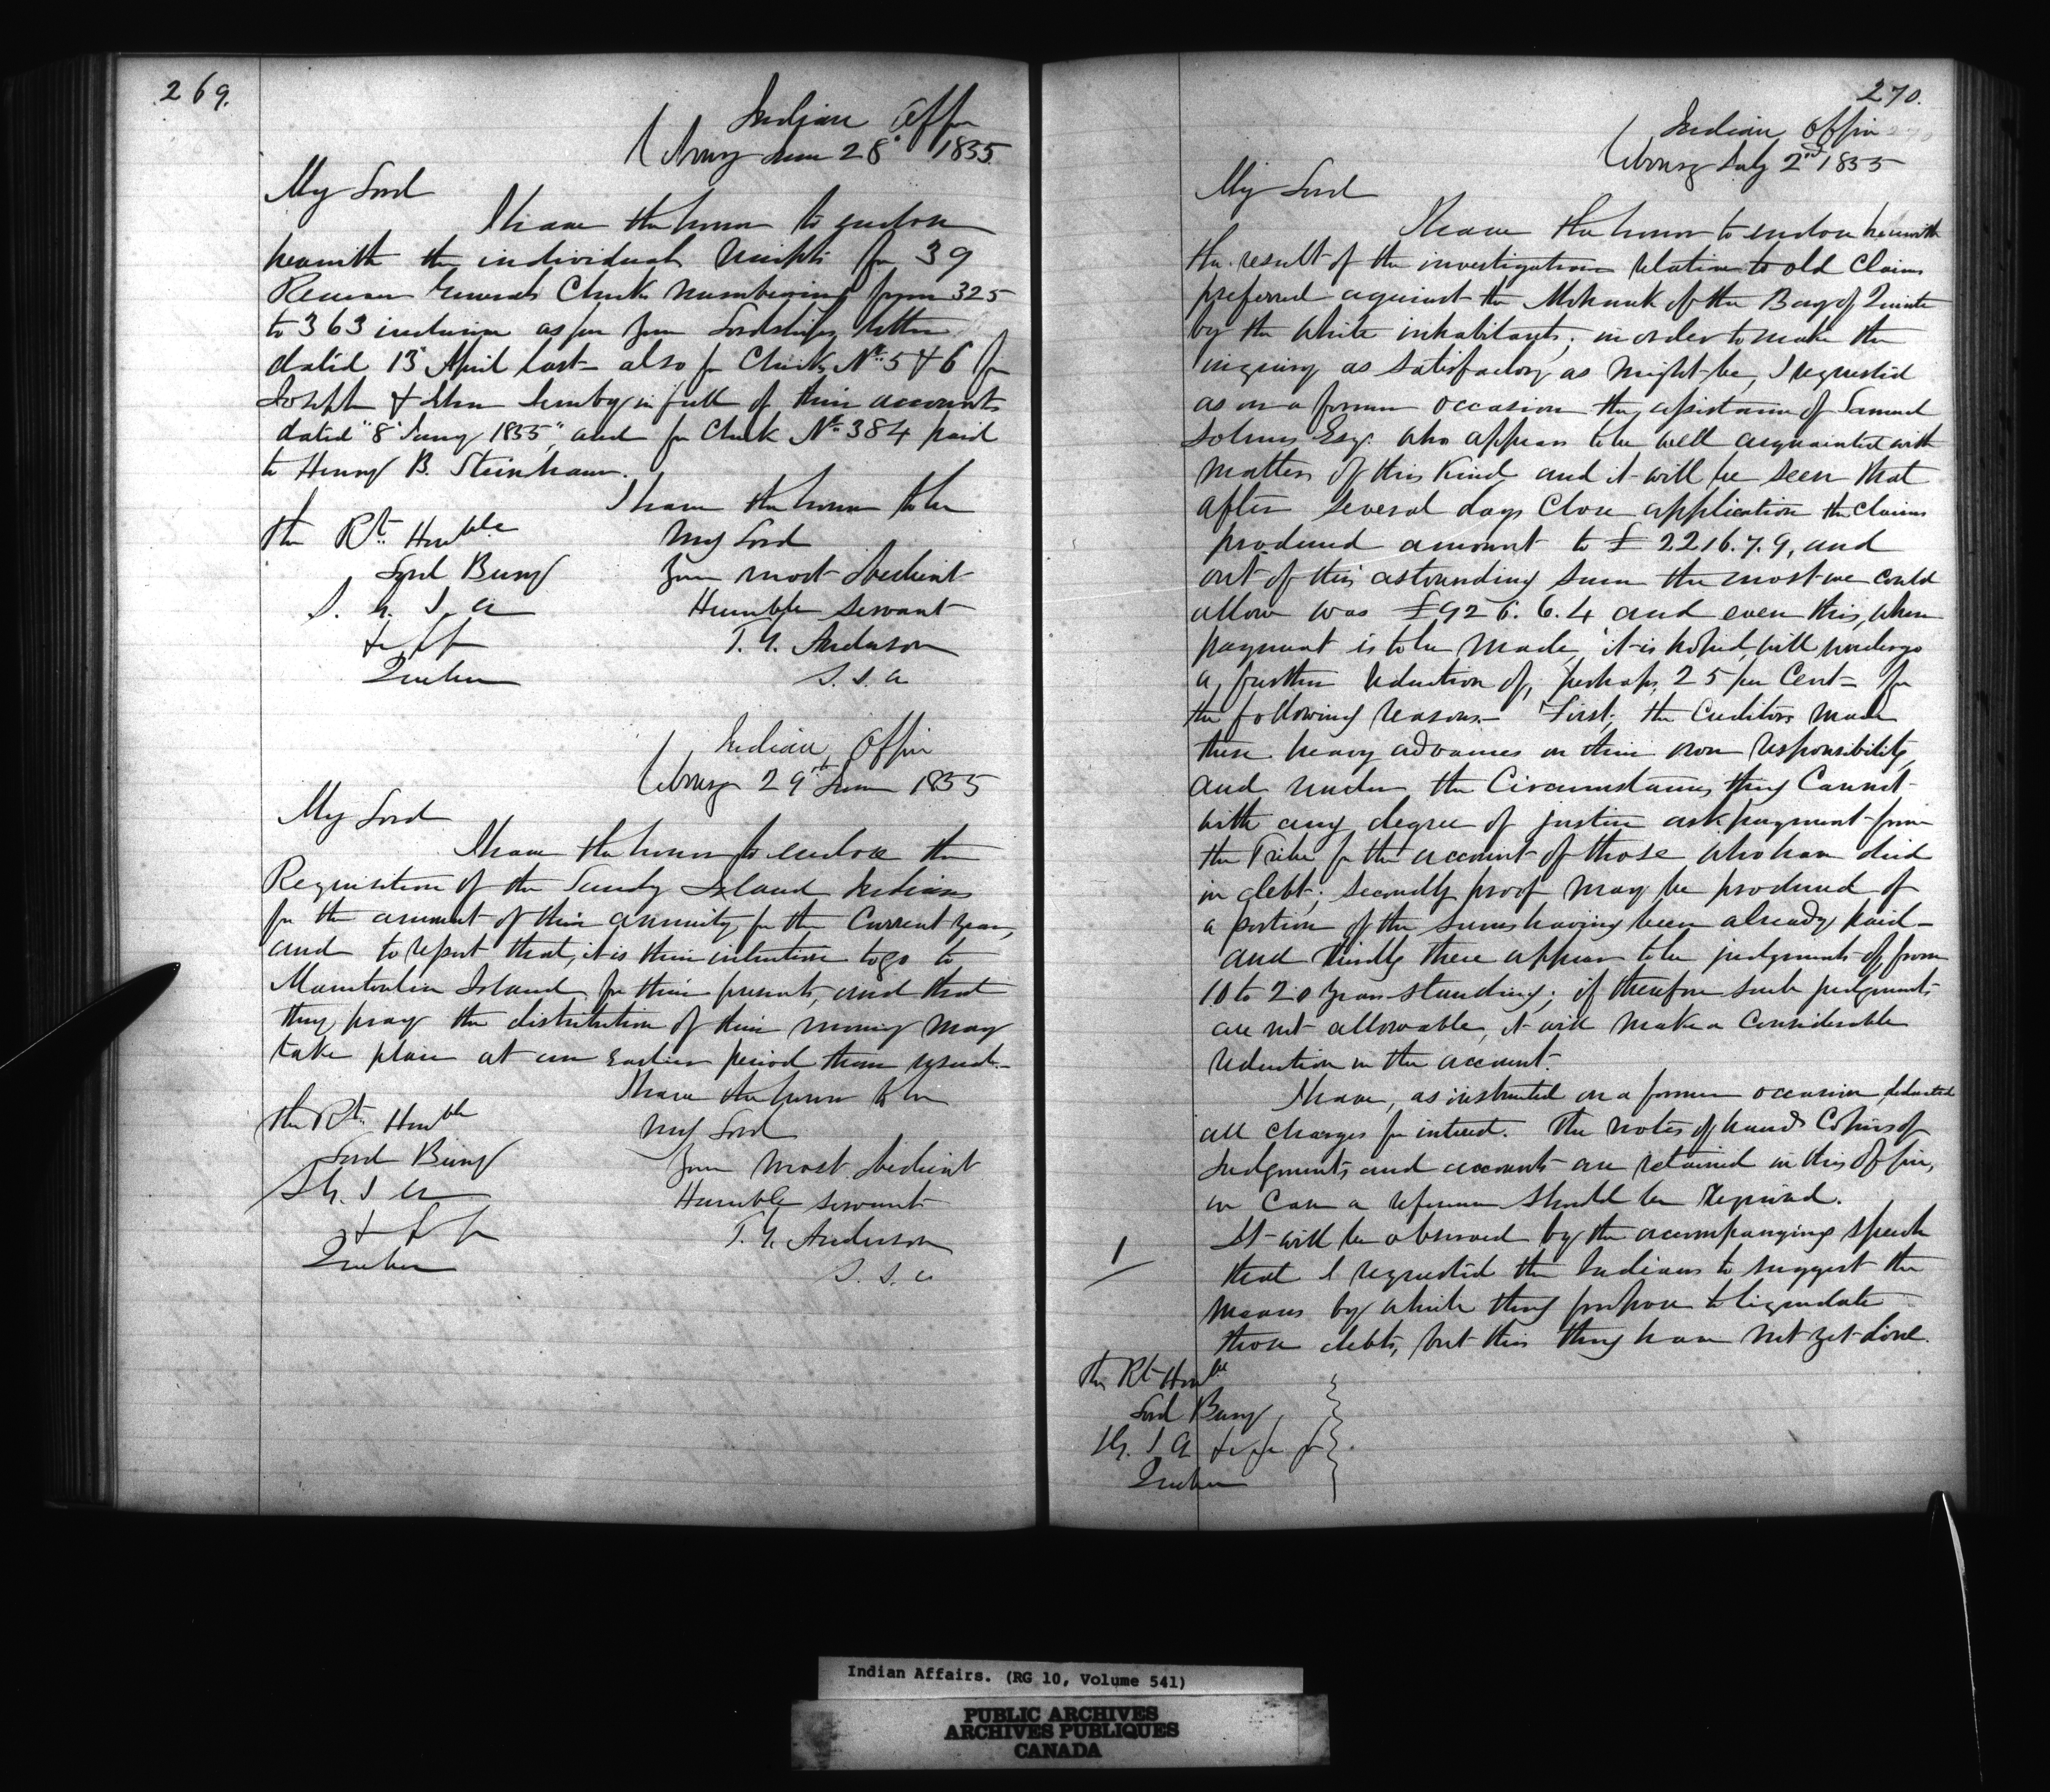 269.
Indian Office
Cobourg June 28" 1855
My Lord
I have the honor to enclose
herewith the individual receipts for 39
Receiver Generals Checks numbering from 325
to 363 inclusive as per your Lordships letter
dated 13" April last - also for Checks No 5 & 6 for
Joseph & in full of their accounts
dated "8" Jany 1855," and for Check No 384 paid
to Henry B. Steinhaur.
I have the honor to be
My Lord
Your most obedient
Humble servant
T. G. Anderson
S. I. A
The Rt Honble
Lord Bury
S. G. I. A
Quebec
Indian Office
Cobourg 29th June 1855
My Lord
I have the honor to enclose the
Requisition of the Sandy Island Indians
for the amount of their annuity for the Current year,
and to report that, it is their intention to go to
Manitoulin Island for their presents, and that
they pray the distribution of their money may
take place at an earlier period than usual.-
I have the honor to be
My Lord
Your most obedient
Humble servant
T. G. Anderson
S. I. A
The Rt Honble
Lord Bury
S G. I A
Quebec
270.
Indian Office
Cobourg July 2nd 1855
My Lord
I have the honor to enclose herewith
the result of the investigation relative to old Claims
preferred against the Mohawk of the Bay of Quinte
by the White inhabitants; in order to make the
inquiry as satisfactory as might be, I requested
as on a former occasion the assistance of Samuel
Esqr. who appears to be well acquainted with
matters of this Kind and it will be seen that
after several days Close application the claims
produced amount to £2216.7.9, and
out of this astounding sum the most we could
allow was £926.6.4 and even this, when
payment is to be made, it is hoped, will undergo
a further reduction of, perhaps, 25 per Cent - for
the following reasons - First; the Creditors made
these heavy advances on their own responsibility
and under the Circumstances they Cannot
with any degree of justice ask payment from
the Tribe for the account of those who have died
in debt; secondly proof may be produced of
a portion of the sums having been already paid -
and thirdly there appear to be judgments of, from
10 to 20 years standing; if therefore such judgments
are not allowable, it will make a Considerable
reduction in the account.
I have, as instructed on a former occasion, deducted
all charges for interest. The notes of hand Copies of
Judgments and accounts are retained in this Office,
in Case a reference should be required.
It will be observed by the accompanying speech
that I requested the Indians to suggest the
means by which they propose to liquidate
those debts, but this they have not yet done.
The Rt Honble
Lord Bury
S G. I A
Quebec
Indian Affairs. (RG 10, Volume 541)
PUBLIC ARCHIVES
ARCHIVES PUBLIQUES
CANADA